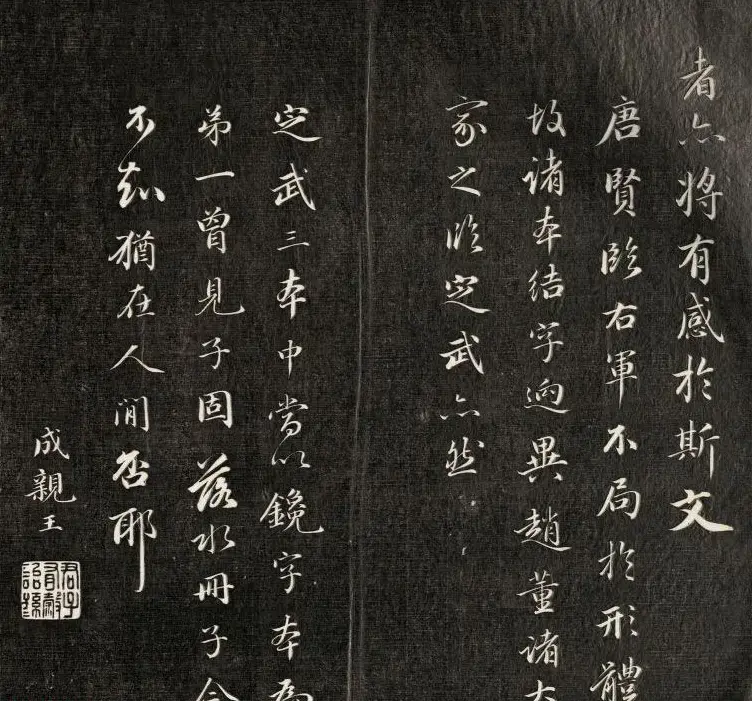 者亦將有感於斯文
唐賢臨右軍不局於形體
故諸本結字迥異趙董諸大
家之臨定武亦然
定武三本中當以鑱字本為
第一曾見子固落水冊子今
不知猶在人間否耶
成親王